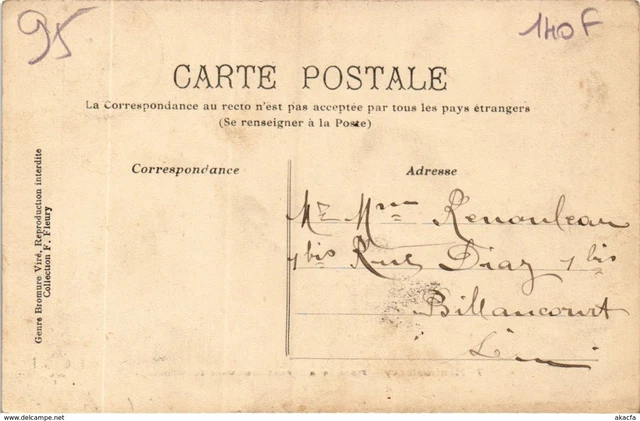 95
140F
CARTE POSTALE
La Correspondance au recto n'est pas acceptée par tous les pays étrangers
(Se renseigner à la Poste)
Correspondance
Adresse
Genre Bromure Viré, Reproduction interdite
Collection F. Fleury
Mr Mme Renouleau
1 bis Rue Diaz 1 bis
Billancourt
www.delcampe.net
akacfa